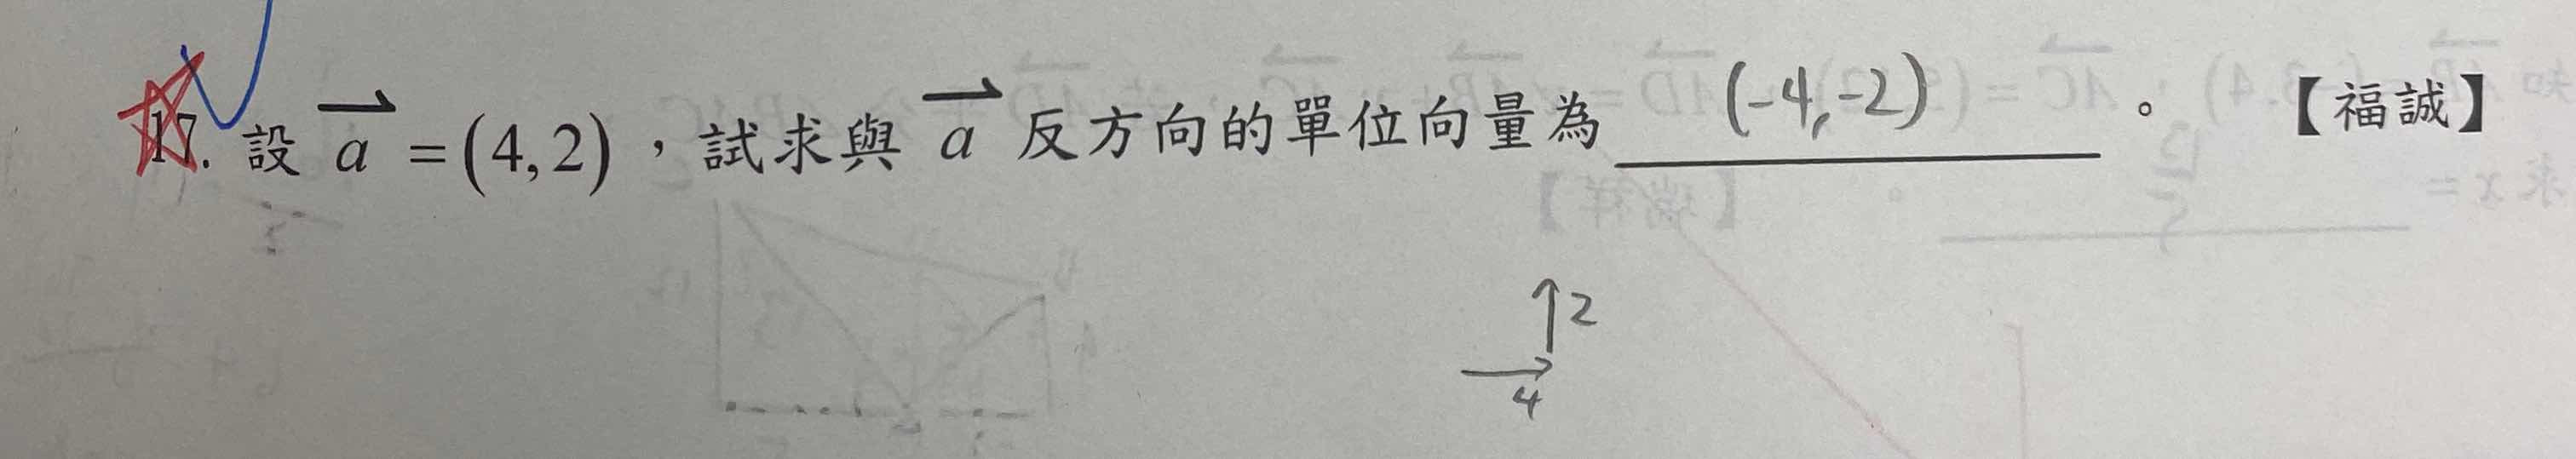 17. 設 a = (4,2)，試求與 a 反方向的單位向量為 (-4,-2) 。 【福誠】
2
4